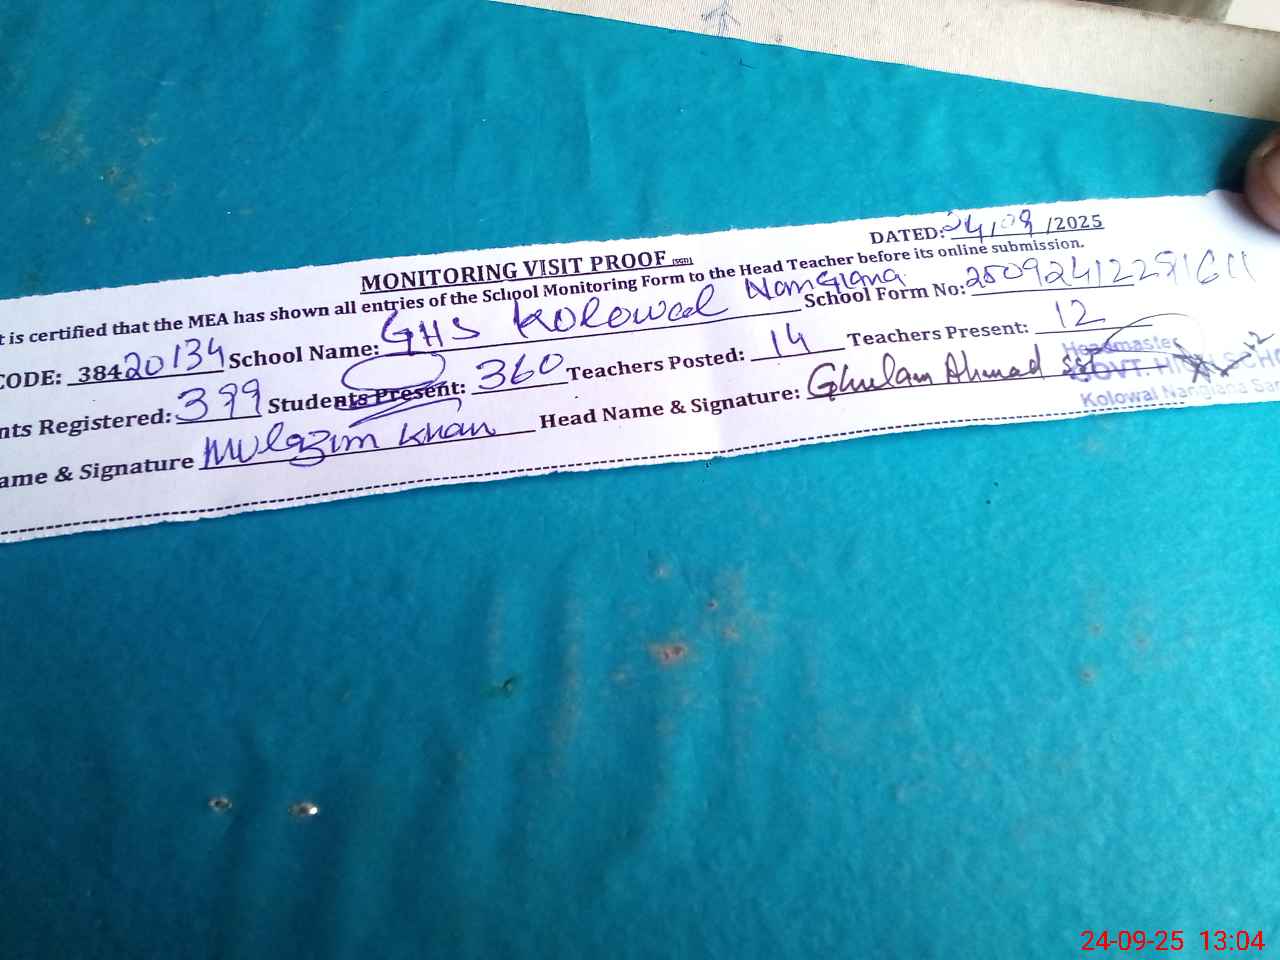 MONITORING VISIT PROOF (SGD) DATED: 24/09/2025
t is certified that the MEA has shown all entries of the School Monitoring Form to the Head Teacher before its online submission.
CODE: 38420134 School Name: GHS Kolowal Nangiana School Form No:
nts Registered: 399 Students Present: 360 Teachers Posted: 14 Teachers Present: 12
ame & Signature Mulazim Khan Head Name & Signature: Ghulam Ahmad SST
Headmaster
GOVT. HIGH SCHO
Kolowal Nangiana Sar
24-09-25 13:04